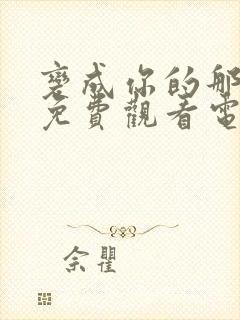 變成你的那
免費觀看電
佘瞿